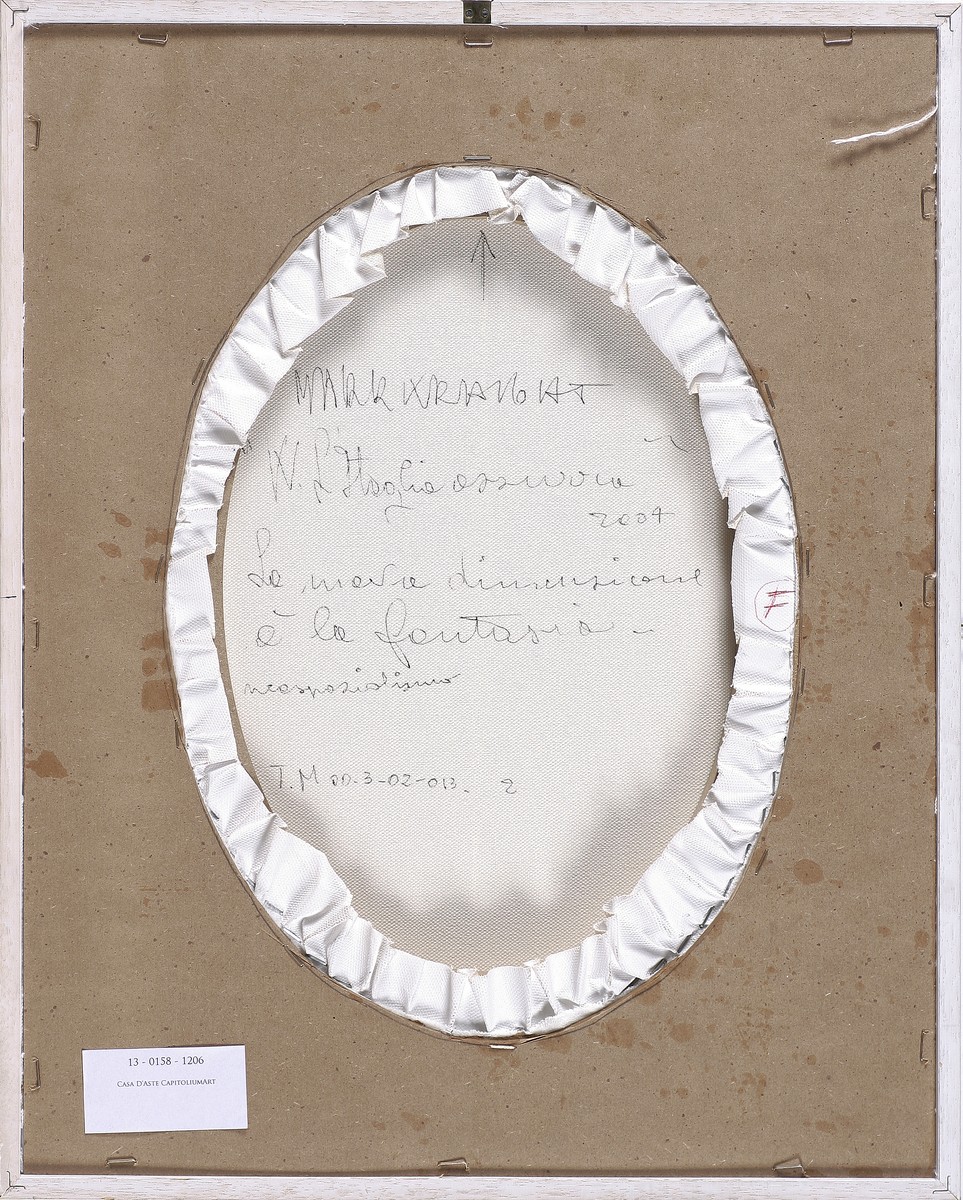 MARK
2004
La nuova dimensione
è la fantasia -
neospazialismo
T.M 00-3-02-013- 2
F
13 - 0158 - 1206
Casa D'Aste CapitoliumArt